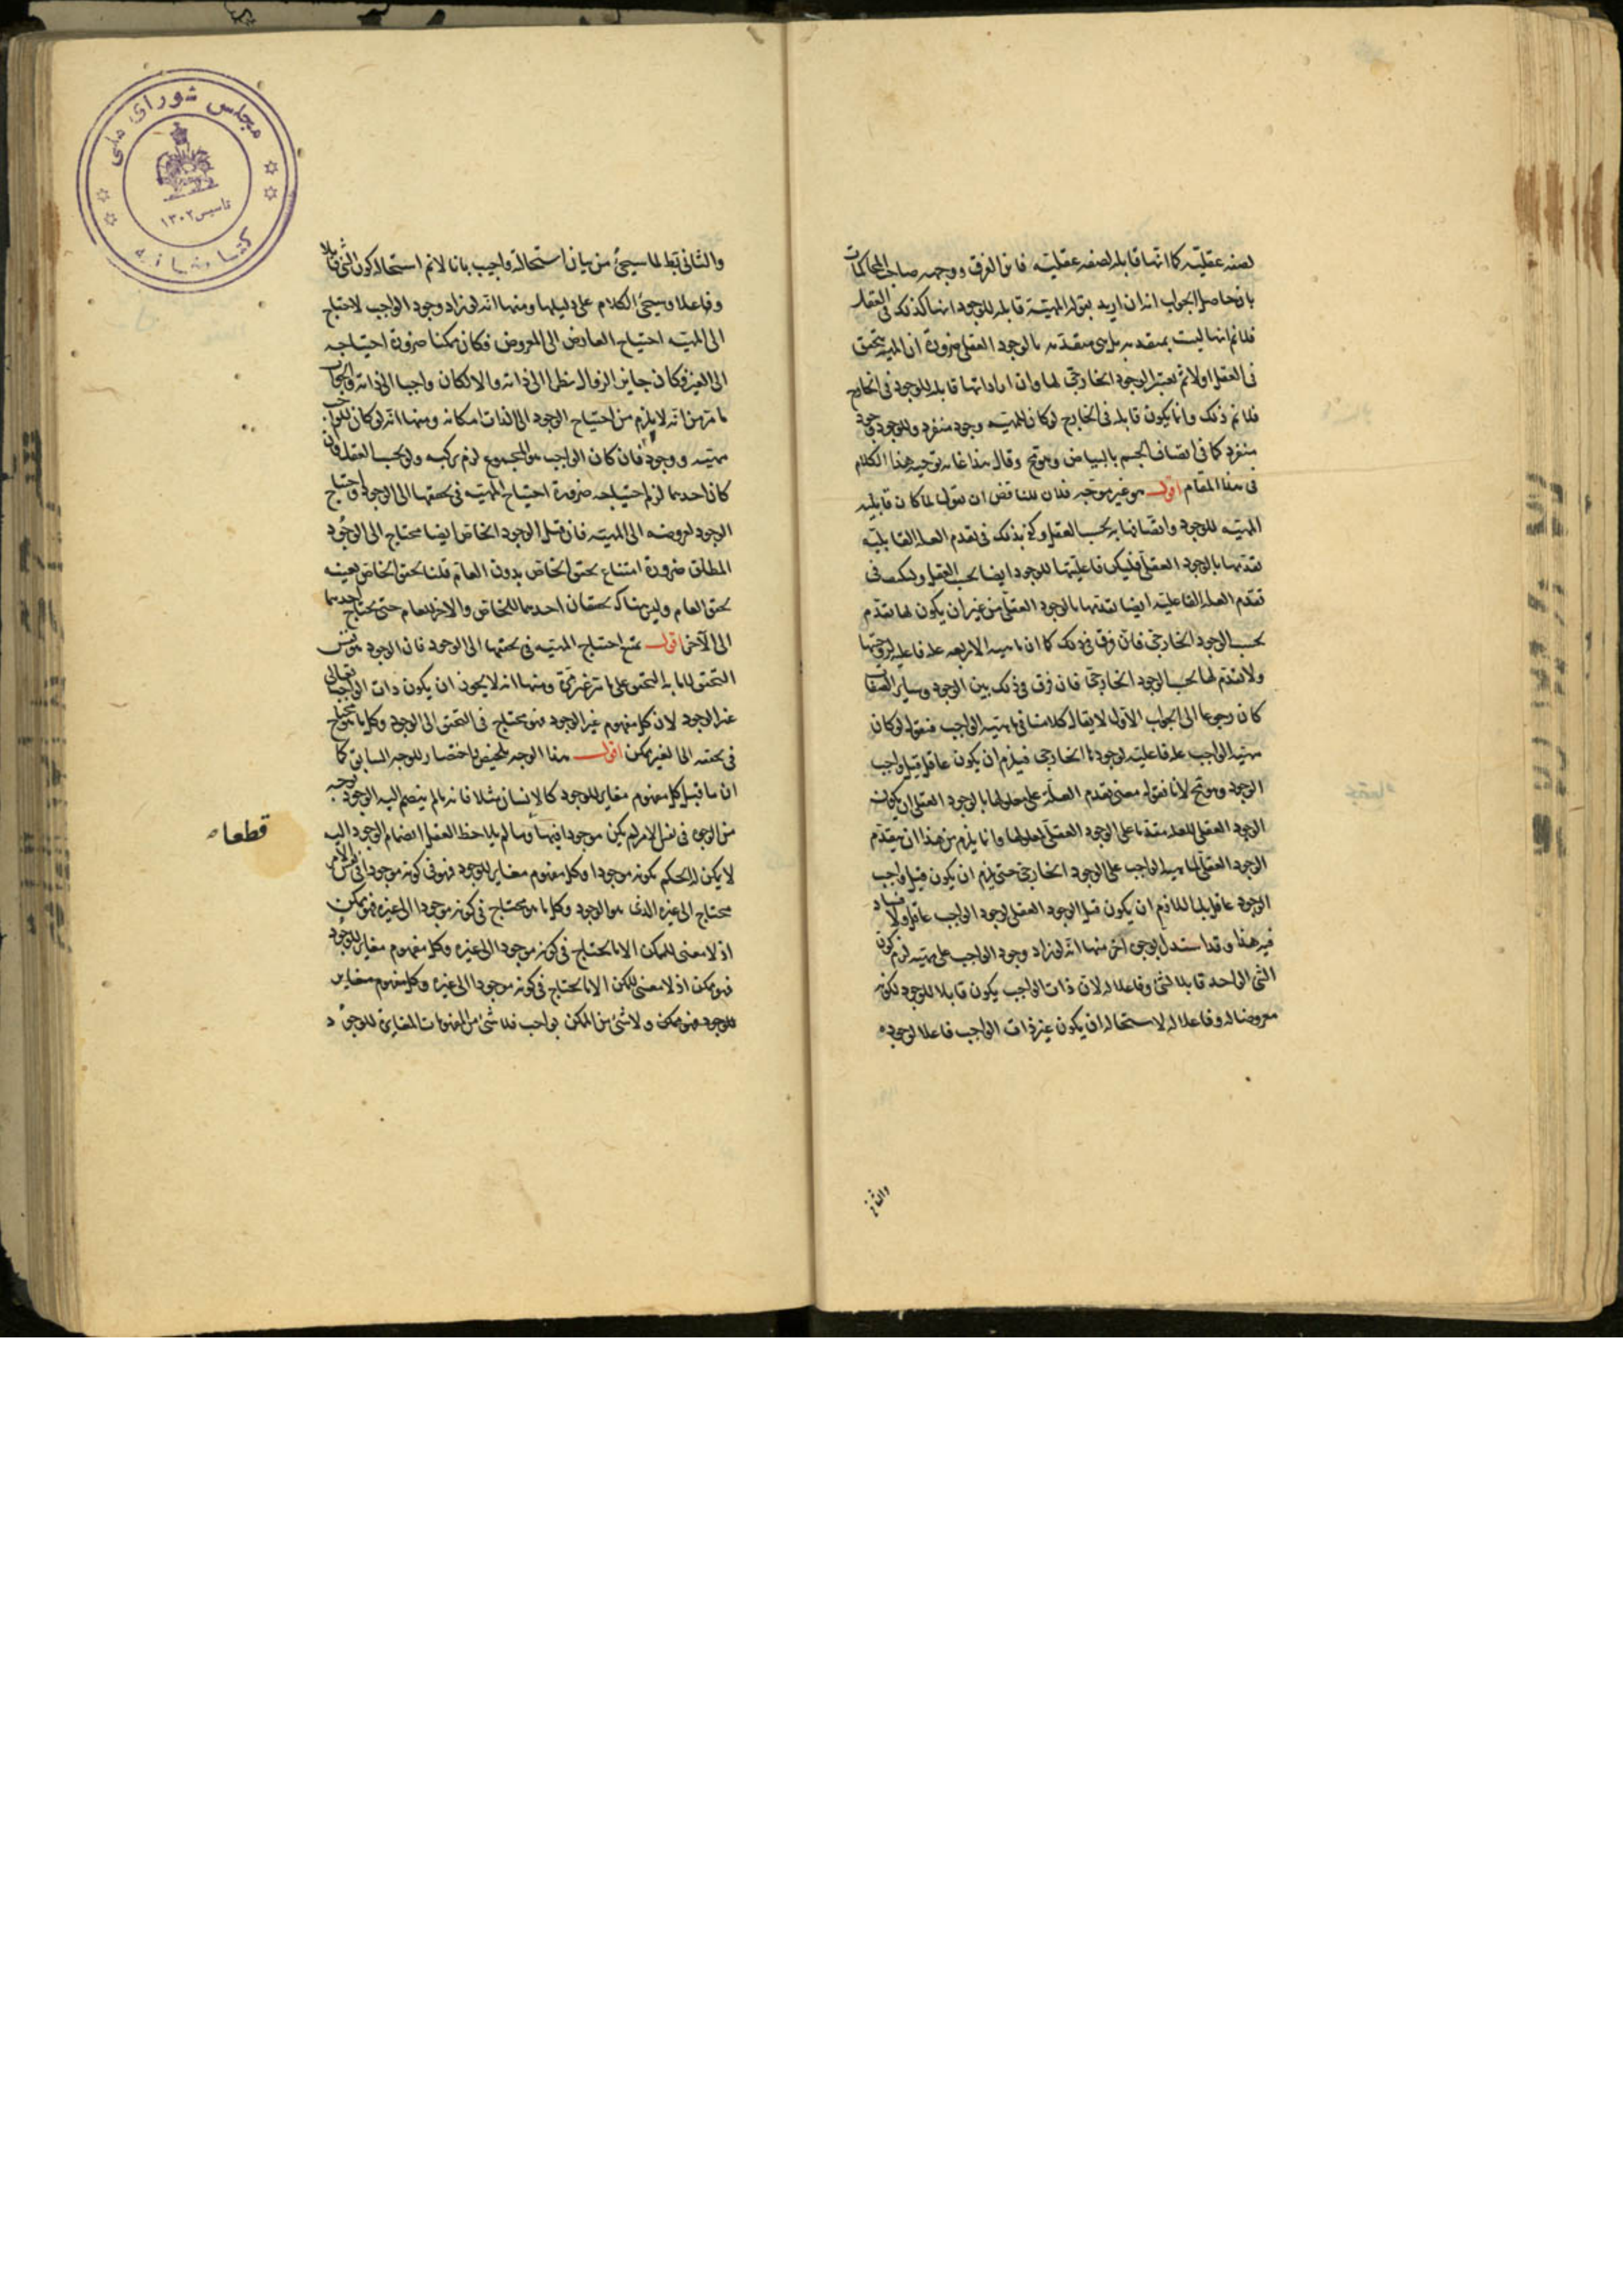 لصفه عقليّه كما انها قابله لصفه عقليّه فاين الفرق ووجهه صاحب المحاكمات
بان حاصل الجواب انه ان اريد بقوله المهيّة قابله للوجود انها كذلك فى العقل
فلا نم انها ليست بمتقدمه بل هى متقدمه بالوجود العقلى ضرورة ان المهيه يتحقق
فى العقل اولا ثم يعتبر الوجود الخارجى لها وان اراد انها قابله للوجود فى الخارج
فلا نم ذلك وانما يكون قابله فى الخارج لو كان للمهيّه وجود منفرد وللوجود وجود
منفرد كما فى اتصاف الجسم بالبياض وهو مح وقال هذا غاية توجيه هذا الكلام
فى هذا المقام اقول هو غير موجّه فلان للناقض ان يقول لما كان قابليه
المهيّه للوجود واتصافها به بحسب العقل وكفى بذلك فى تقدم العلة القابليّه
تقدمها بالوجود العقلى فليكن فاعليتها للوجود ايضا بحسب العقل وليكف فى
تقدم العله الفاعليّه ايضا تقدمها بالوجود العقلى من غير ان يكون لها تقدم
بحسب الوجود الخارجى فاىّ فرق فى ذلك كما ان ماهيه الاربعه علة فاعليه لزوجيتها
ولا تقدم لها بحسب الوجود الخارجى فان فرق فى ذلك بين الوجود وساير الصفات
كان رجوعا الى الجواب الاول لا يقال كلامنا فى ماهيّه الواجب فنقول لو كان
مهيه الواجب علة فاعليّه لوجودها الخارجى فيلزم ان يكون عاقل قبل واجب
الوجود وهو مح لانا نقول معنى تقدم العلّة على معلولها بالوجود العقلى ان يكون
الوجود العقلى للعله متقدما على الوجود العقلى لمعلولها وانما يلزم من هذا ان يتقدم
الوجود العقلى لماهيه الواجب على الوجود الخارجى حتى يلزم ان يكون قبل واجب
الوجود عاقل بل اللازم ان يكون قبل الوجود العقلى لوجود الواجب عاقل ولا فساد
فيه هذا وقد استدل بوجوه اخر منها انّه لو زاد وجود الواجب على مهيّته لزم كون
الشئ الواحد قابلا لشئ وفاعلا له لان ذات الواجب يكون قابلا للوجود لكونه
معروضا له وفاعلا له لاستحاله ان يكون غير ذات الواجب فاعلا لوجوده
والثانى
والثانى بط لما سيجئ من بيان استحالة واجيب بانا لا نم استحاله كون الشئ قابلا
وفاعلا وسيجئ الكلام على دليلها ومنها انّه لو زاد وجود الواجب لاحتاج
الى المهيّه احتياج العارض الى المعروض فكان ممكنا ضرورة احتياجه
الى الغير فكان جايز الزوال نظرا الى ذاته والا لكان واجبا الى ذاته والجواب
ما مرّ من انّه لا يلزم من احتياج الوجود الى الذات امكانه ومنها انّه لو كان للواجب
مهيّه ووجود فان كان الواجب هو المجموع لزم تركبه ولو بحسب العقل وان
كان احدهما لزم احتياجه ضرورة احتياج المهيّه فى تحققها الى الوجود واحتياج
الوجود لعروضه الى المهيّه فان قيل الوجود الخاص ايضا محتاج الى الوجود
المطلق ضرورة امتناع تحقق الخاص بدون العام قلنا تحقق الخاص بعينه
تحقق العام وليس هناك تحققان احدهما للخاص والاخر للعام حتى يحتاج احدهما
الى الآخر اقول يمنع احتياج المهيّه فى تحققها الى الوجود فان الوجود هو نفس
التحقق لا ما به التحقق على ما مرّ غير مرّة ومنها انه لا يجوز ان يكون ذات الواجب تعالى
غير الوجود لان كل مفهوم غير الوجود فهو محتاج فى التحقق الى الوجود وكل ما يحتاج
فى تحققه الى الغير ممكن اقول هذا الوجه تلخيص باختصار للوجه السابق كما
ان ما قيل كل مفهوم مغاير للوجود كالانسان مثلا فانه ما لم ينضم اليه الوجود بوجه
من الوجوه فى نفس الامر لم يكن موجودا فيها وما لم يلاحظ العقل انضمام الوجود اليه
قطعا
لا يمكن له الحكم بكونه موجودا وكل مفهوم مغاير للوجود فهو فى كونه موجودا فى نفس الامر
محتاج الى غيره الذى هو الوجود وكل ما هو محتاج فى كونه موجودا الى غيره فهو ممكن
اذ لا معنى للممكن الا ما يحتاج فى كونه موجودا الى غيره وكل مفهوم مغاير للوجود
فهو ممكن اذ لا معنى للمكن الا ما يحتاج فى كونه موجودا الى غيره وكل مفهوم مغاير
للوجود فهو ممكن ولا شئ من الممكن بواجب فلا شئ من المفهومات المغايرة للوجود
مجلس شورای ملی
تاسیس ۱۳۰۲
کتابخانه